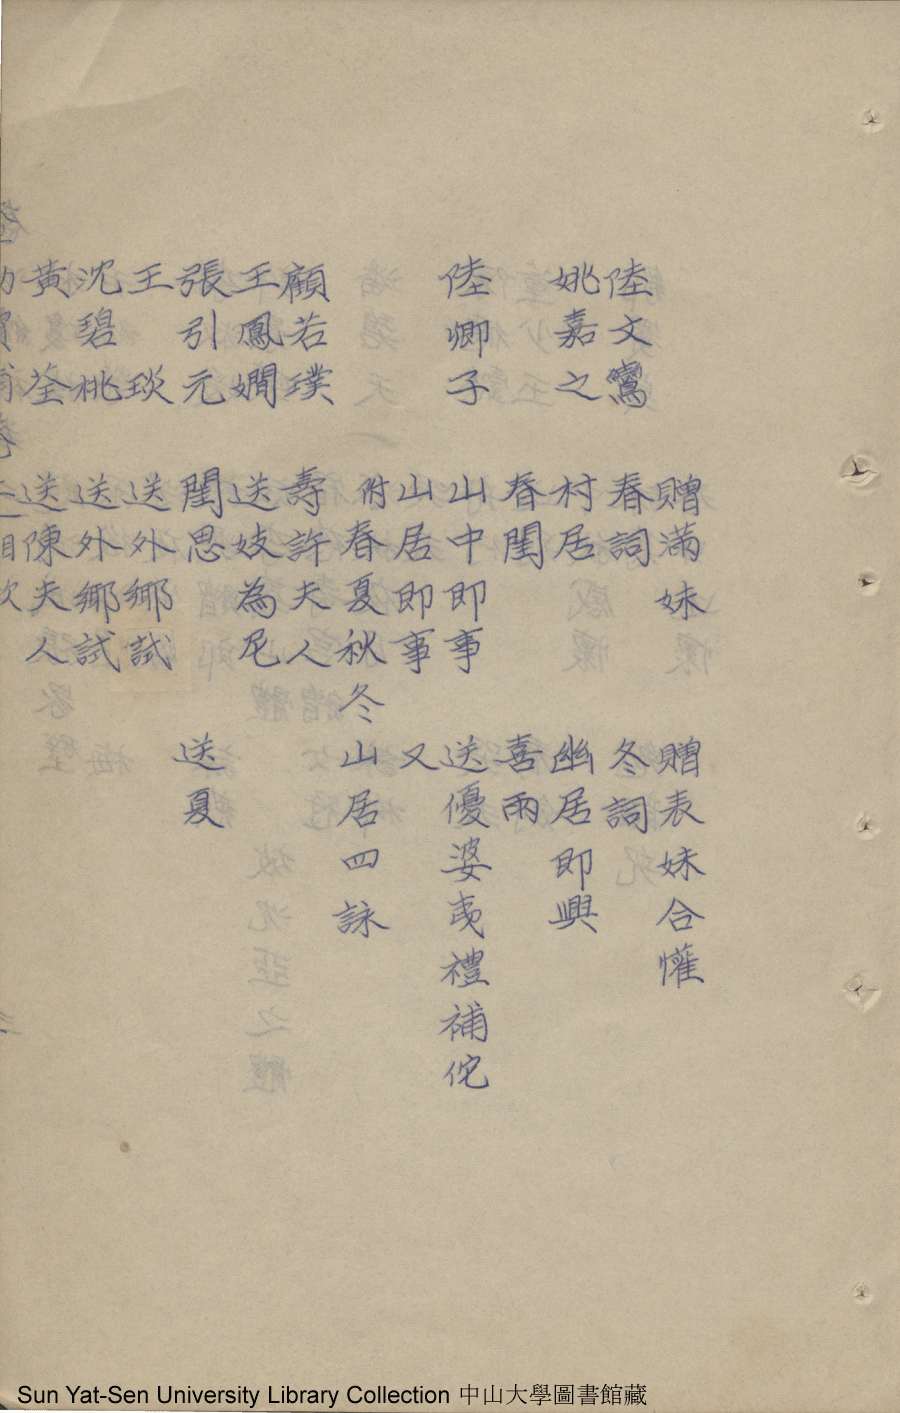 贈滿妹 贈表妹合懽
陸文鸞 春詞 冬詞
姚嘉之 村居 幽居即興
春閨 喜雨
陸卿子 山中即事 送優婆夷禮補佗
山居即事 又
附春夏秋冬山居四詠
顧若璞 壽許夫人
王鳳嫺 送妓為尼
張引元 閨思 送夏
王琰 送外鄉試
沈碧桃 送外鄉試
黃荃 送陳夫人
Sun Yat-Sen University Library Collection 中山大學圖書館藏